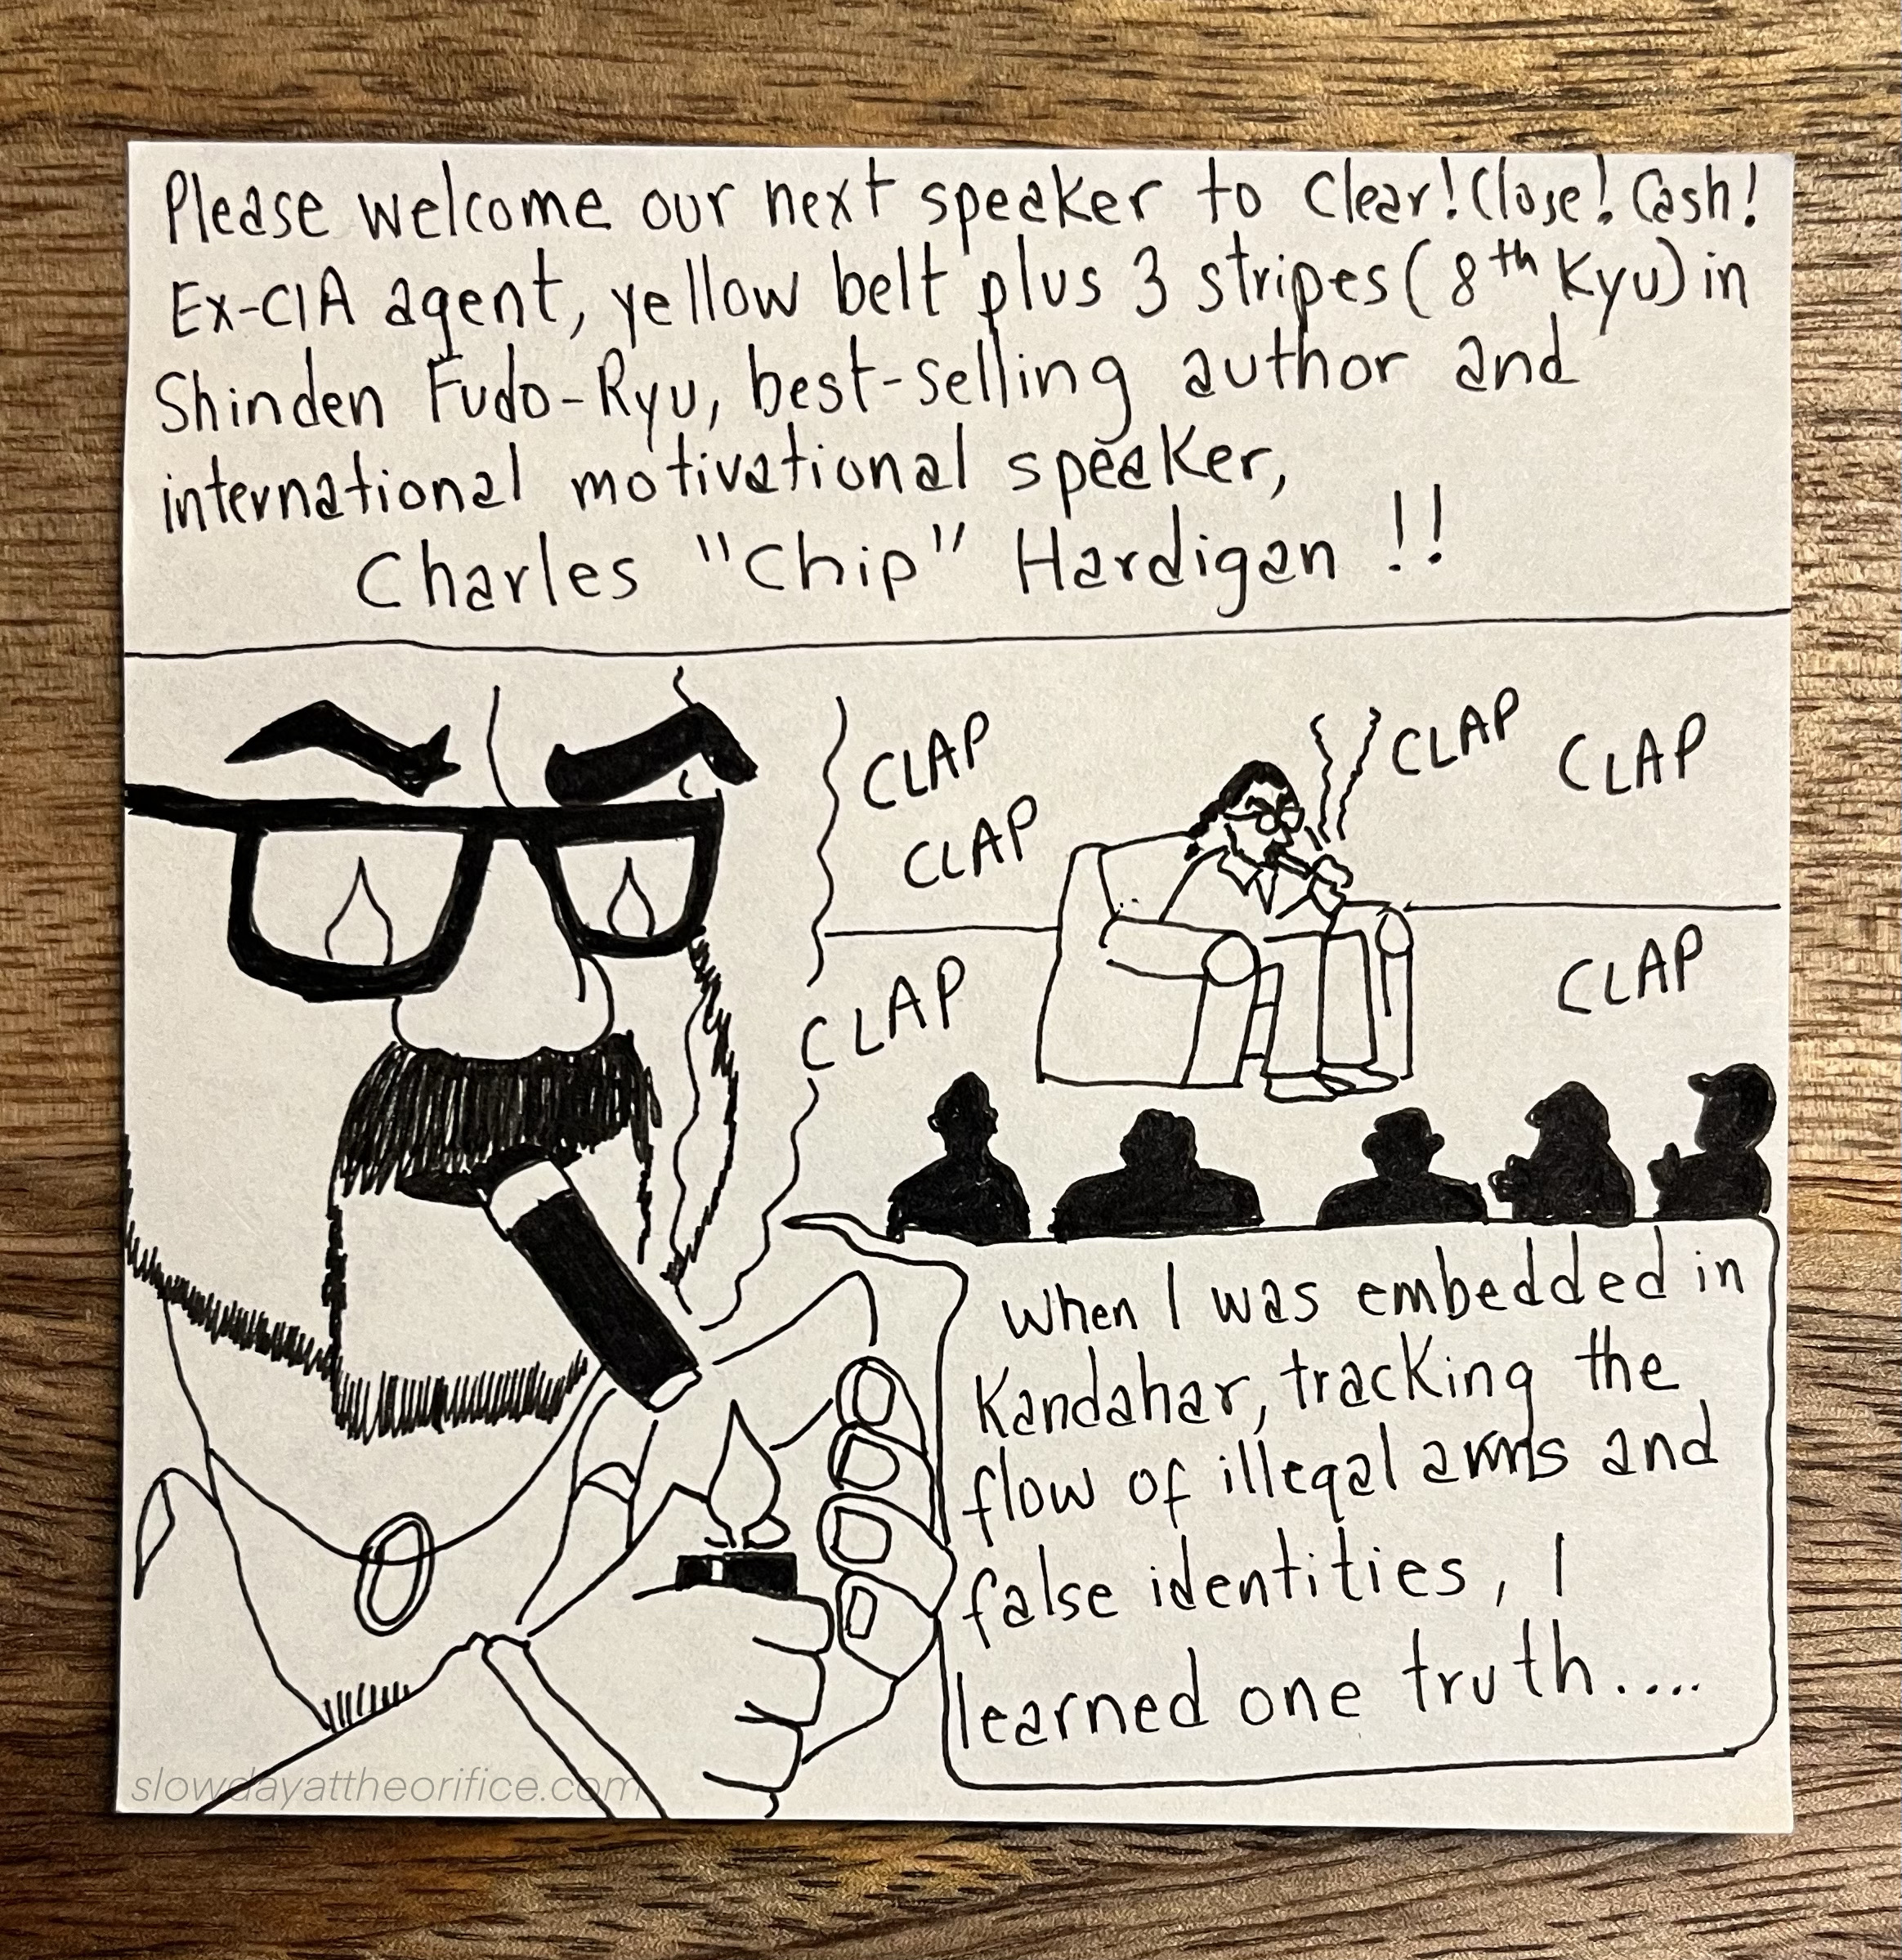 Please welcome our next speaker to Clear! Close! Cash!
Ex-CIA agent, yellow belt plus 3 stripes (8th Kyu) in
Shinden Fudo-Ryu, best-selling author and
international motivational speaker,
Charles "Chip" Hardigan!!
CLAP
CLAP
CLAP
CLAP
CLAP
CLAP
When I was embedded in
Kandahar, tracking the
flow of illegal arms and
false identities, I
learned one truth....
slowdayattheorifice.com